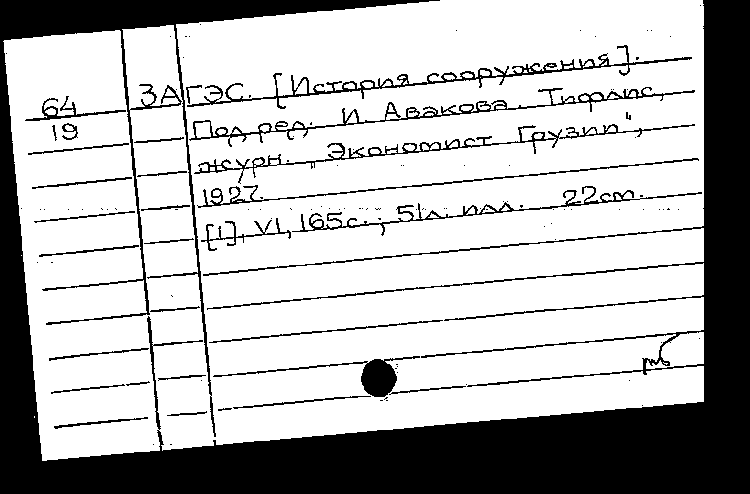 64 ЗАГЭС. [История сооружения].
19 Под ред. И. Авакова. Тифлис,
журн. „Экономист Грузии",
1927.
[1], VI, 165с.; 51л. илл. 22см.